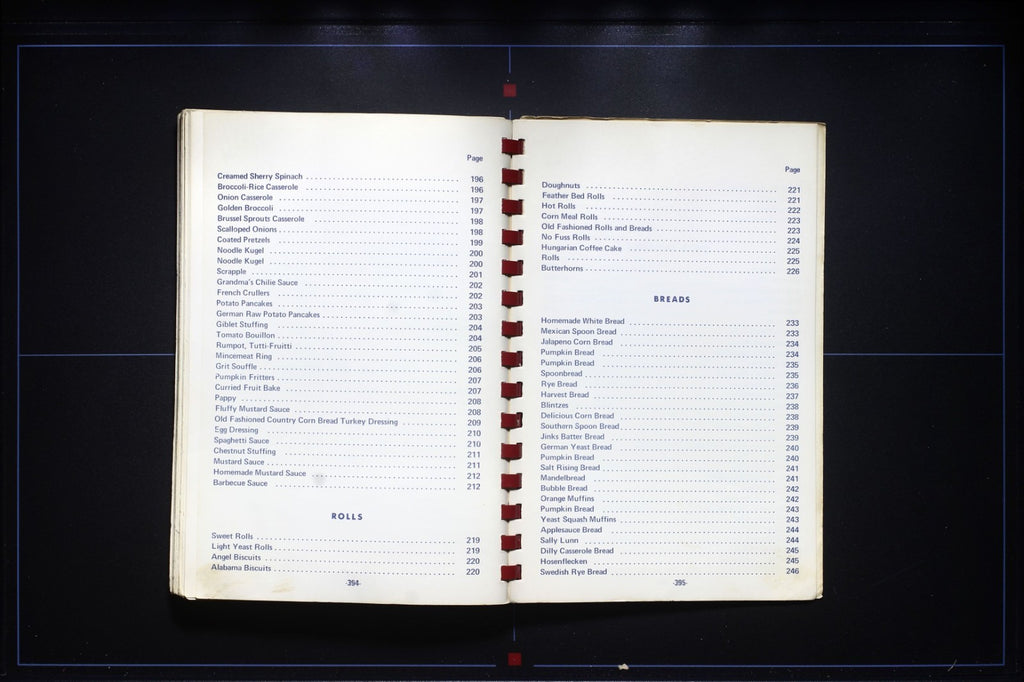 Page
Creamed Sherry Spinach 196
Broccoli-Rice Casserole 196
Onion Casserole 197
Golden Broccoli 197
Brussel Sprouts Casserole 198
Scalloped Onions 198
Coated Pretzels 199
Noodle Kugel 200
Noodle Kugel 200
Scrapple 201
Grandma's Chilie Sauce 202
French Crullers 202
Potato Pancakes 203
German Raw Potato Pancakes 203
Giblet Stuffing 204
Tomato Bouillon 204
Rumpot, Tutti-Fruitti 205
Mincemeat Ring 206
Grit Souffle 206
Pumpkin Fritters 207
Curried Fruit Bake 207
Pappy 208
Fluffy Mustard Sauce 208
Old Fashioned Country Corn Bread Turkey Dressing 209
Egg Dressing 210
Spaghetti Sauce 210
Chestnut Stuffing 211
Mustard Sauce 211
Homemade Mustard Sauce 212
Barbecue Sauce 212
ROLLS
Sweet Rolls 219
Light Yeast Rolls 219
Angel Biscuits 220
Alabama Biscuits 220
-394-
Page
Doughnuts 221
Feather Bed Rolls 221
Hot Rolls 222
Corn Meal Rolls 223
Old Fashioned Rolls and Breads 223
No Fuss Rolls 224
Hungarian Coffee Cake 225
Rolls 225
Butterhorns 226
BREADS
Homemade White Bread 233
Mexican Spoon Bread 233
Jalapeno Corn Bread 234
Pumpkin Bread 234
Pumpkin Bread 235
Spoonbread 235
Rye Bread 236
Harvest Bread 237
Blintzes 238
Delicious Corn Bread 238
Southern Spoon Bread 239
Jinks Batter Bread 239
German Yeast Bread 240
Pumpkin Bread 240
Salt Rising Bread 241
Mandelbread 241
Bubble Bread 242
Orange Muffins 242
Pumpkin Bread 243
Yeast Squash Muffins 243
Applesauce Bread 244
Sally Lunn 244
Dilly Casserole Bread 245
Hosenflecken 245
Swedish Rye Bread 246
-395-